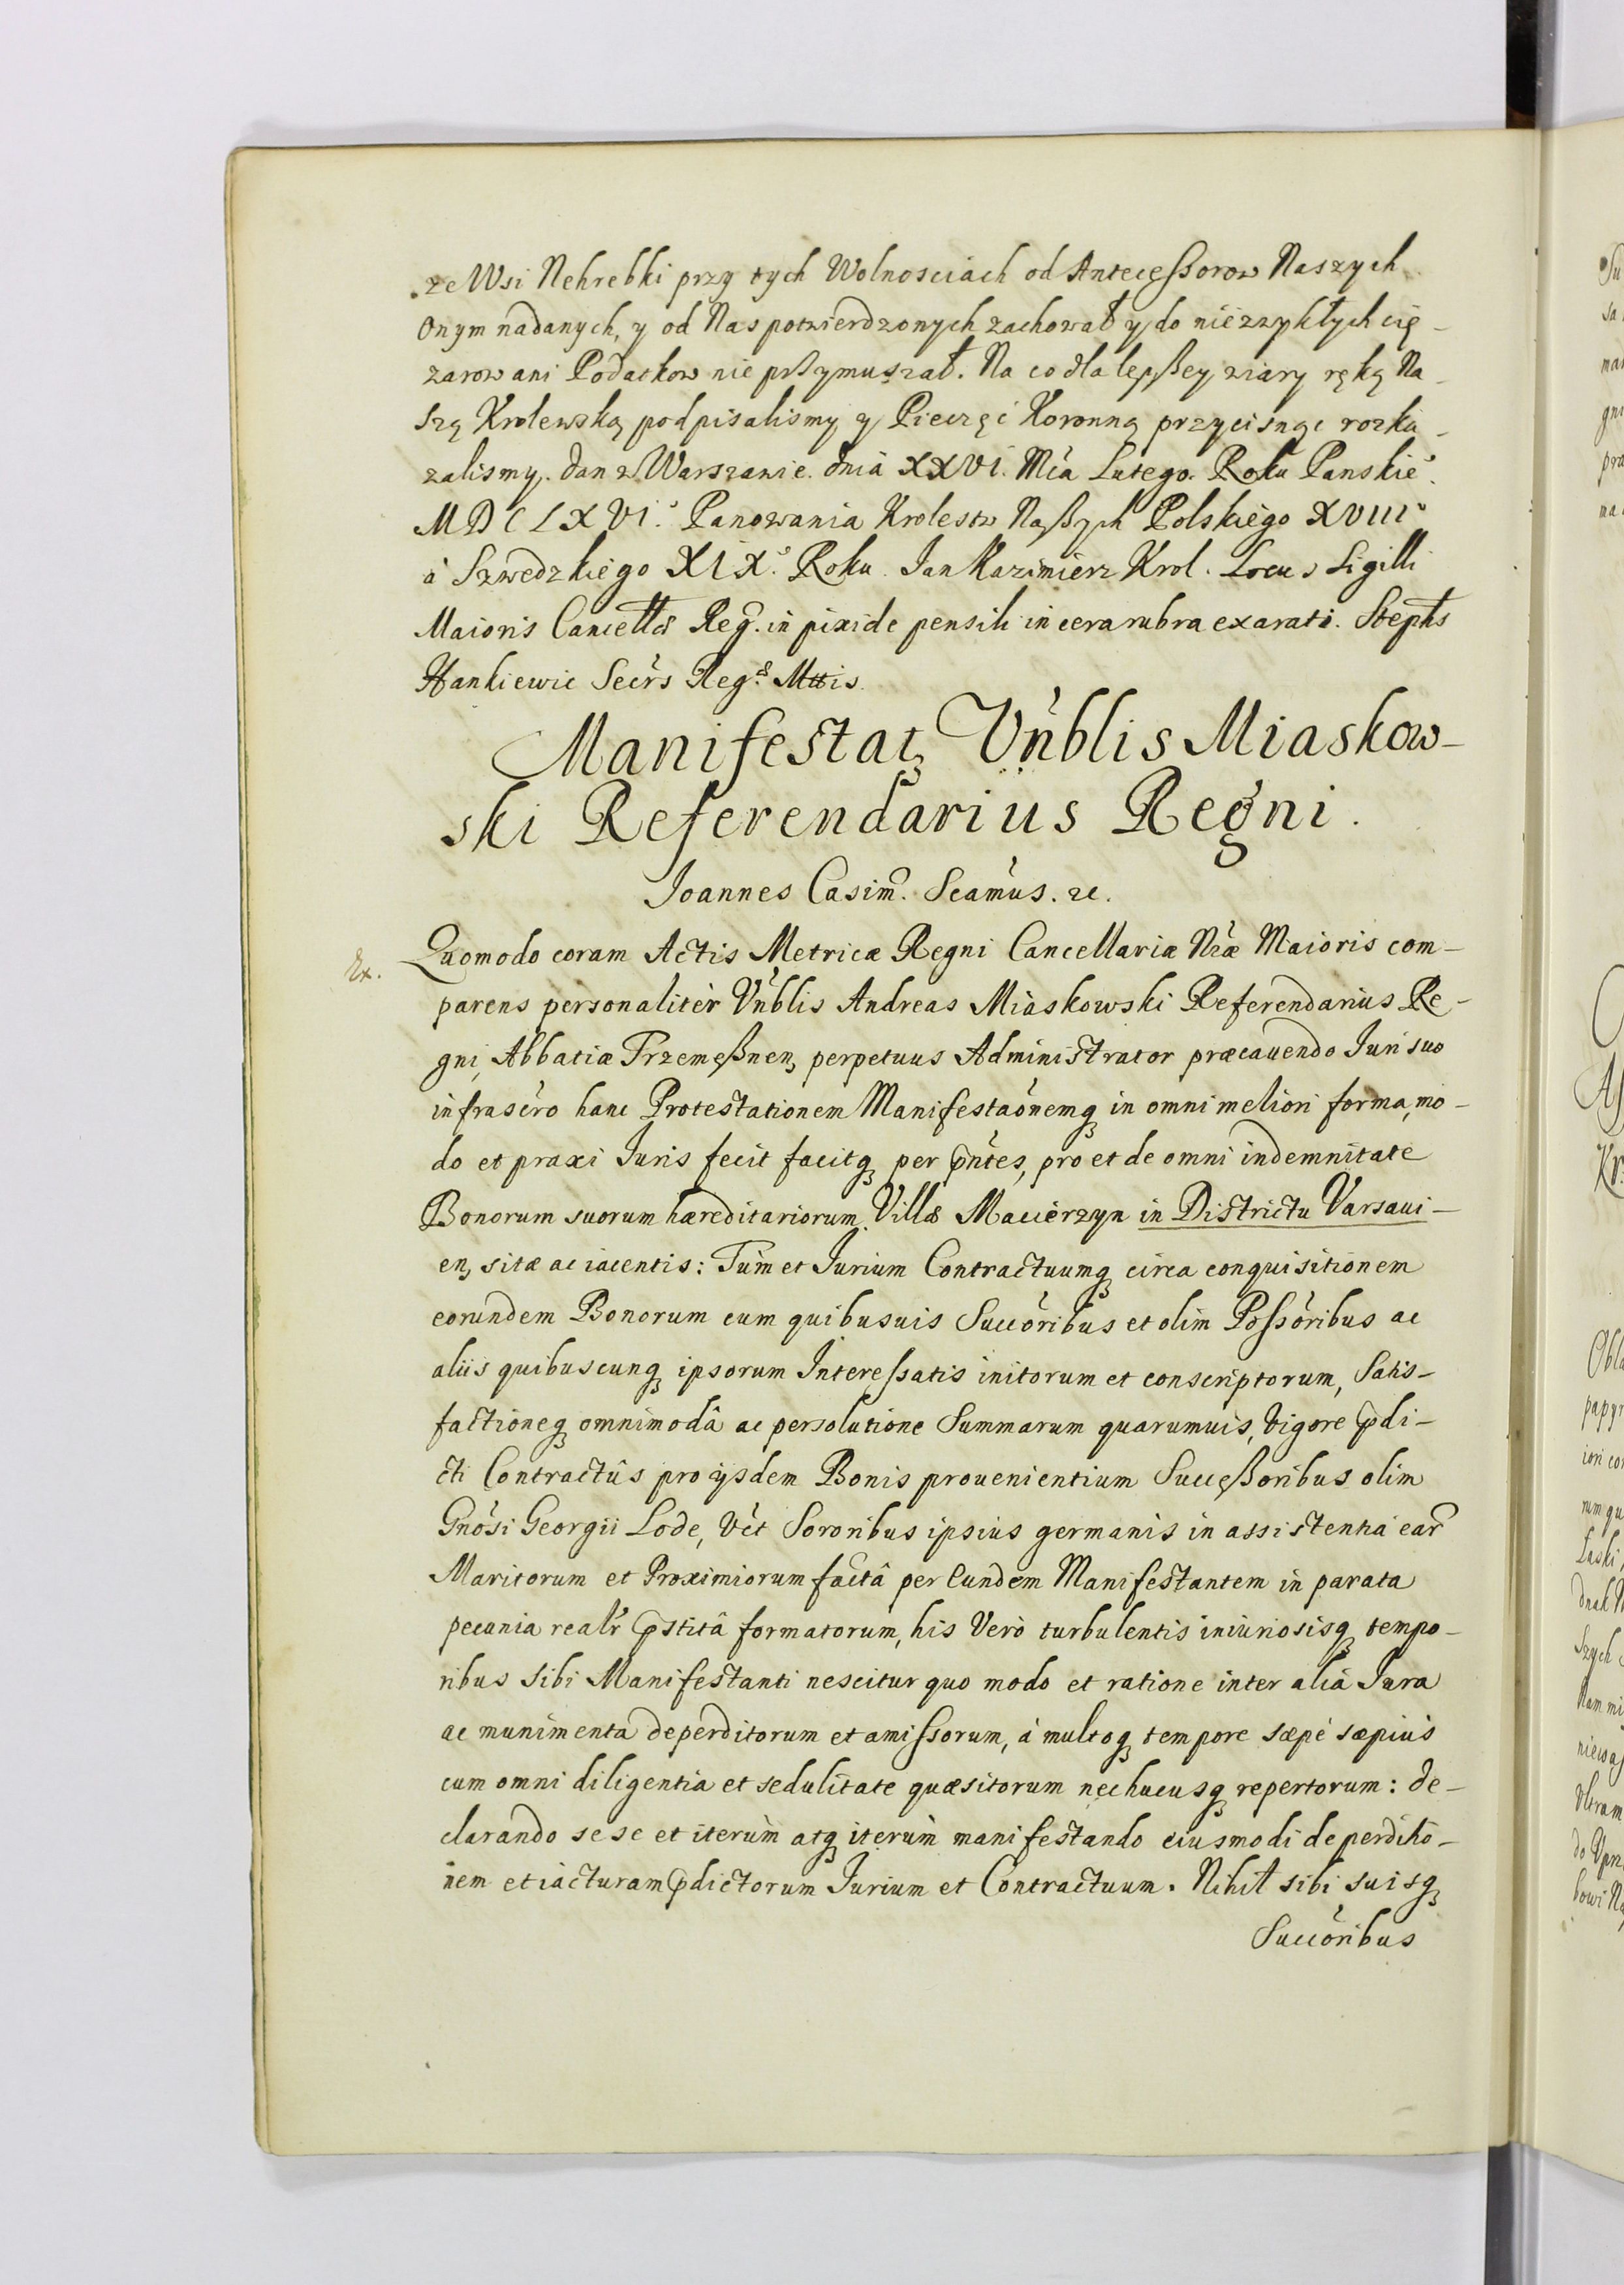 ze Wsi Nehrebki przy tych Wolnosciach od Antecęßorow Naszych
Onym nadanych, y od Nas potwierdzonych zachował y do niezwykłych cię-
zarow ani Podatkow nie prßymuszał. Na co dla lepßey wiary ręką Na-
szą Krolewską podpisalismy y Pieczęć Koronną przycisnąc rozka-
zalismy. Dan w Warszawie. dnia XXVI. Mca Lutego. Roku Panskie°.
MDCLXVI.° Panowania Krolestw Naßych Polskiego XVIII°
à Szwedzkiego XIX.° Roku. Jan Kazimierz Krol. Locus Sigilli
Maioris Cancellæ Reg. in pixide pensili in cera rubra exarati. Stephs
Hankiewic Secrs Reg.æ Mttis.
Manifestatꝫ Vnblis Miaskow-
ski Referendarius Regni.
Joannes Casim. Scamus. zc.
Ex.
Quomodo coram Actis Metricæ Regni Cancellariæ Nræ Maioris com-
parens personalitèr Vnblis Andreas Miaskowski Referendarius Re-
gni, Abbatiæ Trzemeßnenꝫ perpetuus Administrator præcauendo Juri suo
infrascro hanc Protestationem Manifestaonemqꝫ in omni meliori forma, mo-
do et praxi Juris fecit facitqꝫ per pntes, pro et de omni indemnitate
Bonorum suorum hæreditariorum Villæ Macierzyn in Districtu Varsaui-
enꝫ sitæ ac iacentis: Tùm et Jurium Contractuumqꝫ circa conquisitionem
eorundem Bonorum cum quibusuis Succoribus et olim Poſsoribus ac
aliis quibuscunqꝫ ipsorum Intereſsatis initorum et conscriptorum, Satis-
factioneqꝫ omnimodâ ac persolutione Summarum quarumuis, vigore pdi-
cti Contractûs pro ijsdem Bonis prouenientium Succęßoribus olim
Gnosi Georgii Lode, vèt Sororibus ipsius germanis in assistentia ear
Maritorum et Proximiorum factâ per Eundem Manifestantem in parata
pecunia realr pstitâ formatorum, his Verò turbulentis iniuriosisqꝫ tempo-
ribus sibi Manifestanti nescitur quo modo et ratione inter alia Jura
ac munimenta deperditorum et amiſsorum, à multoqꝫ tempore sæpè sæpiùs
cum omni diligentia et sedulitate quæsitorum nec hucusqꝫ repertorum: de-
clarando se se et iterùm atqꝫ iterùm manifestando eiusmodi deperditio-
nem et iacturam pdictorum Jurium et Contractuum. Nihił sibi suisqꝫ
Succoribus